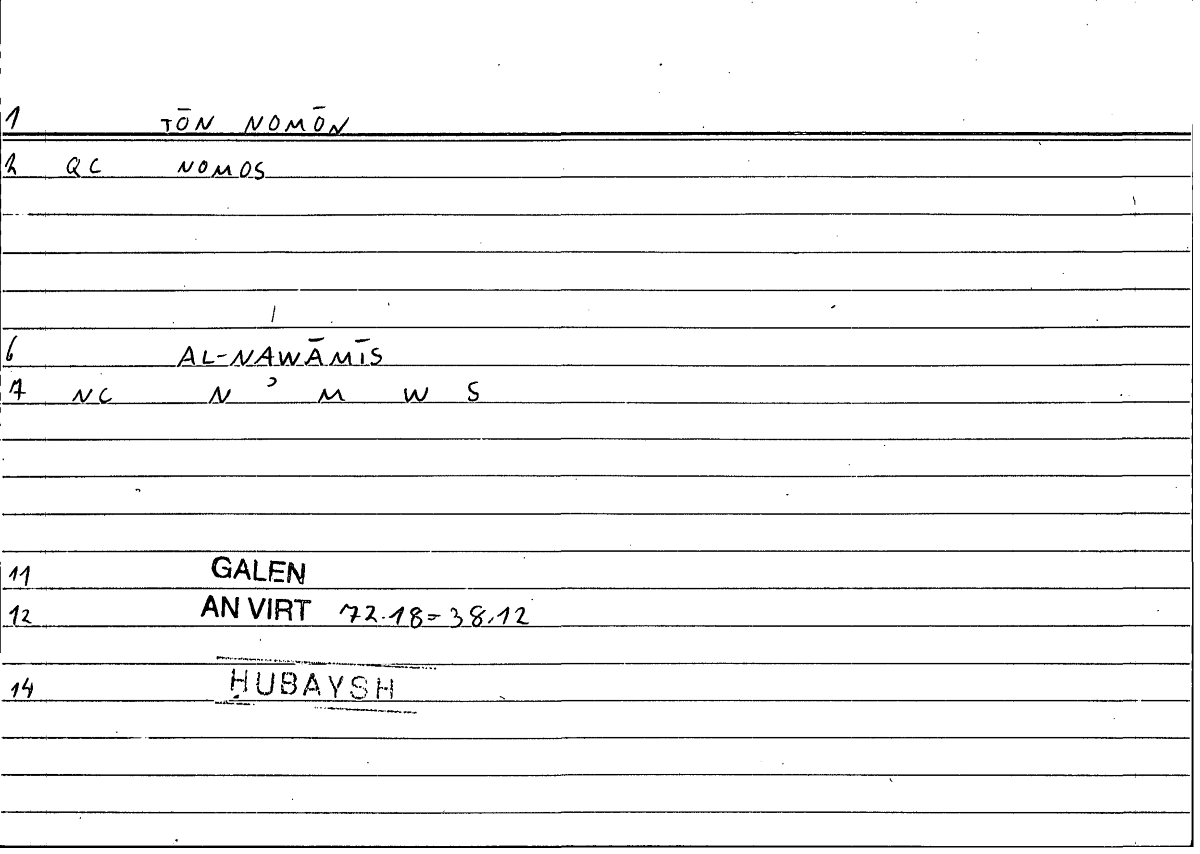 1 TŌN NOMŌN
2 QC NOMOS
6 AL-NAWĀMĪS
7 NC N ʾ M W S
11 GALEN
12 AN VIRT 72.18=38.12
14 ḤUBAYSH